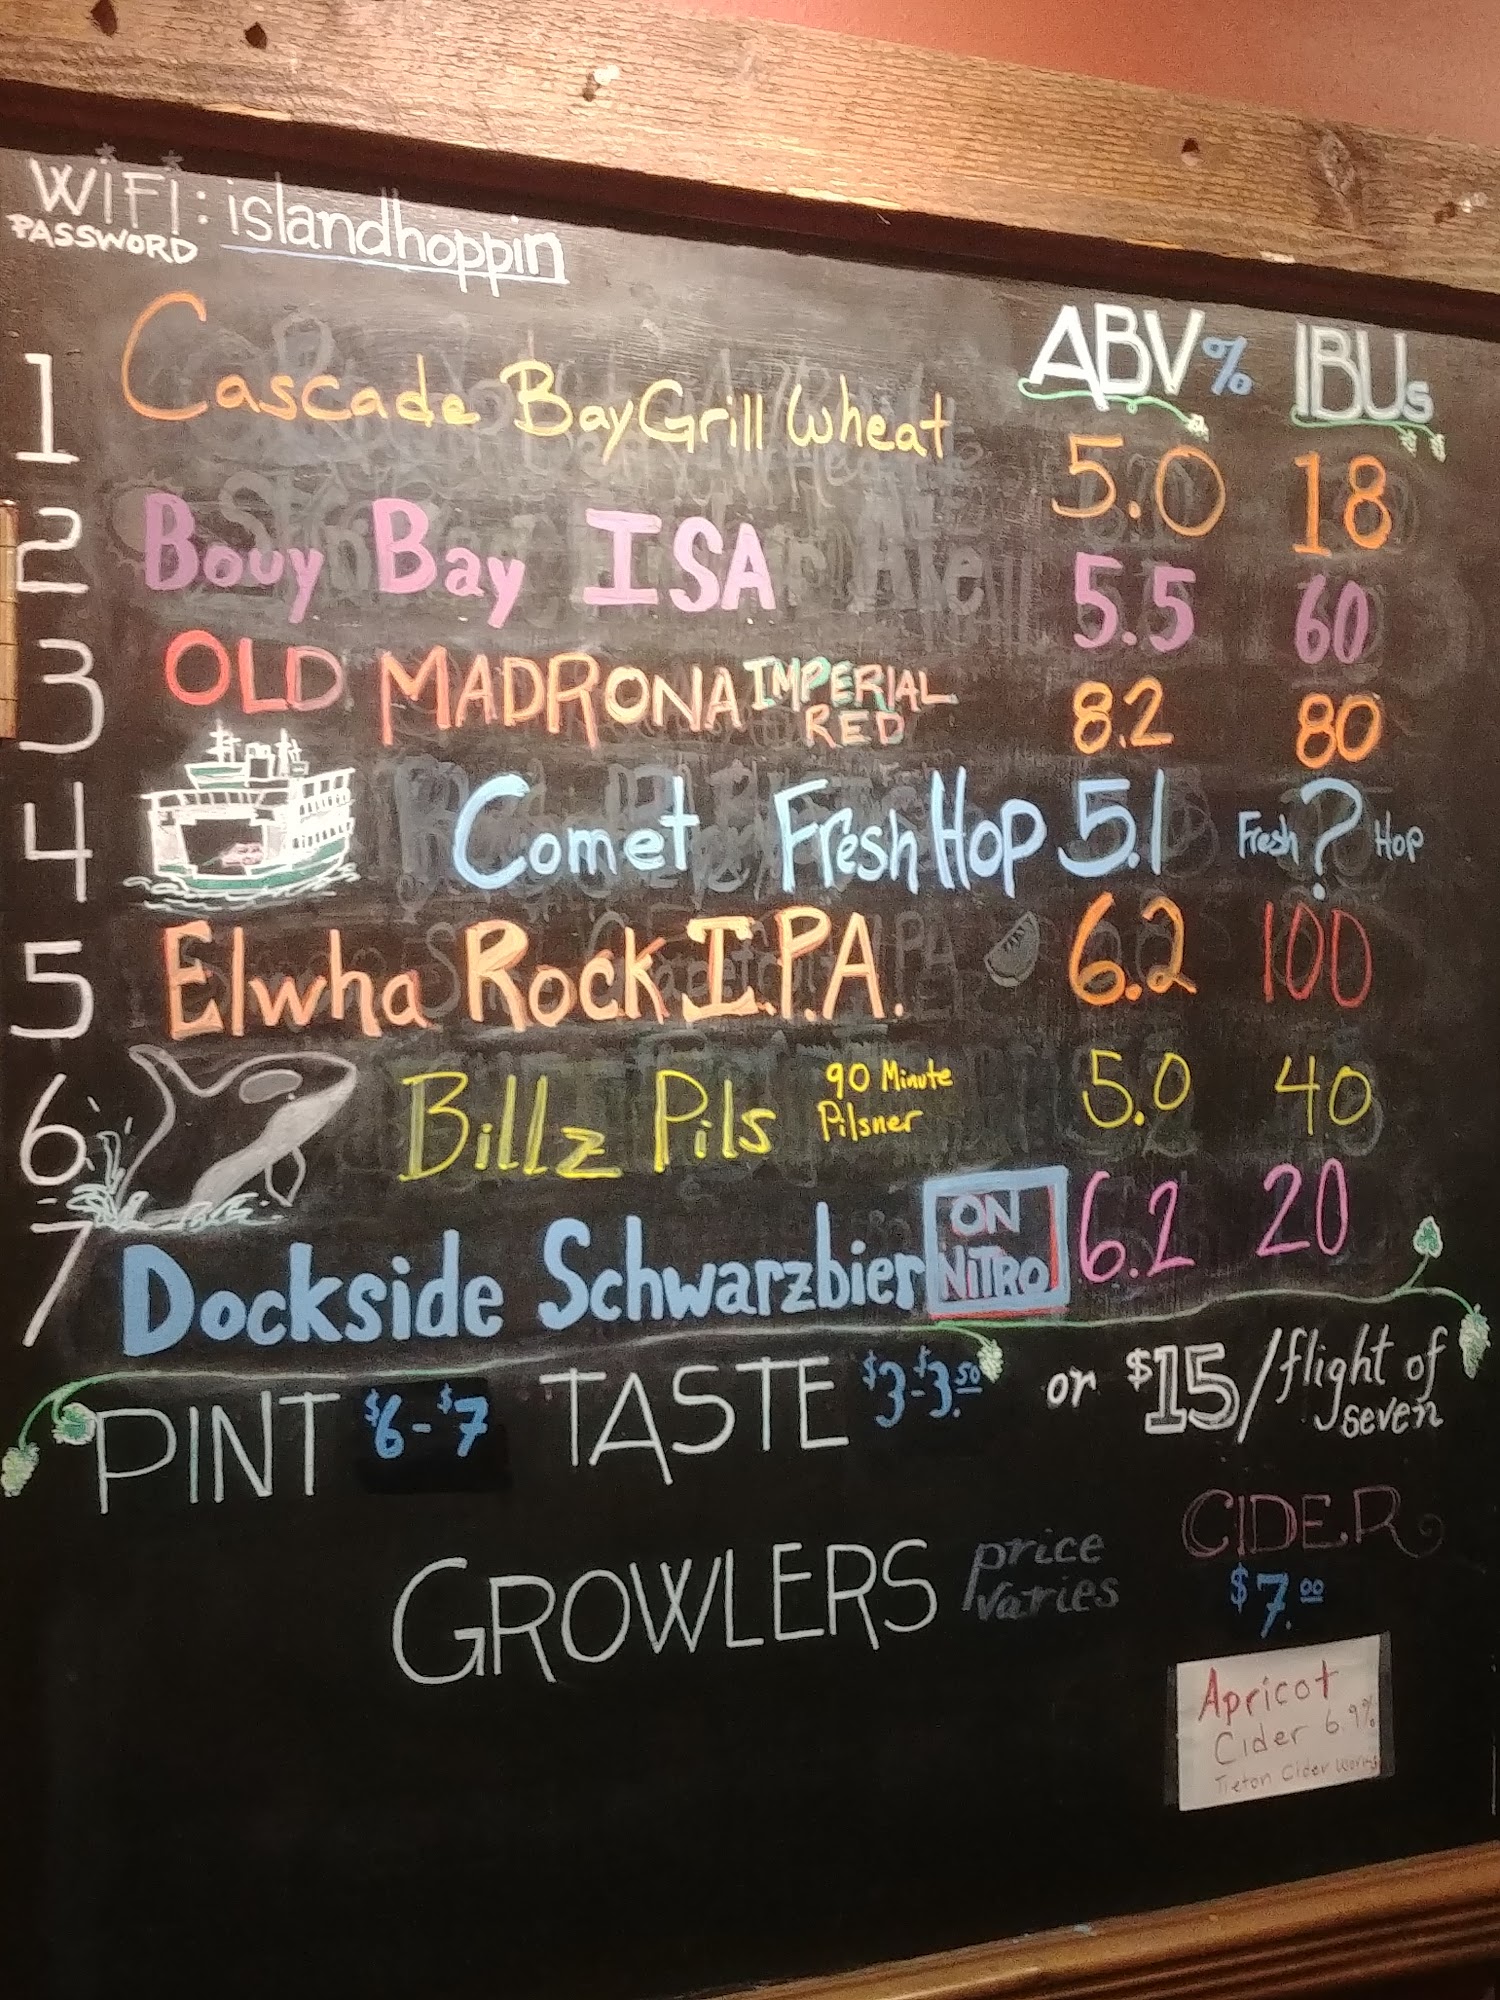 WiFi: islandhoppin
PASSWORD
ABV % IBUs
1 Cascade Bay Grill Wheat 5.0 18
2 Bouy Bay ISA 5.5 60
3 OLD MADRONA IMPERIAL RED 8.2 80
4 Comet Fresh Hop 5.1 Fresh ? Hop
5 Elwha Rock I.P.A. 6.2 100
6 Billz Pils 90 Minute Pilsner 5.0 40
7 Dockside Schwarzbier ON NITRO 6.2 20
PINT $6-$7 TASTE $3-$3.50 or $15/flight of seven
GROWLERS price varies
CIDER
$7.00
Apricot
Cider 6.9%
Tieton Cider Works